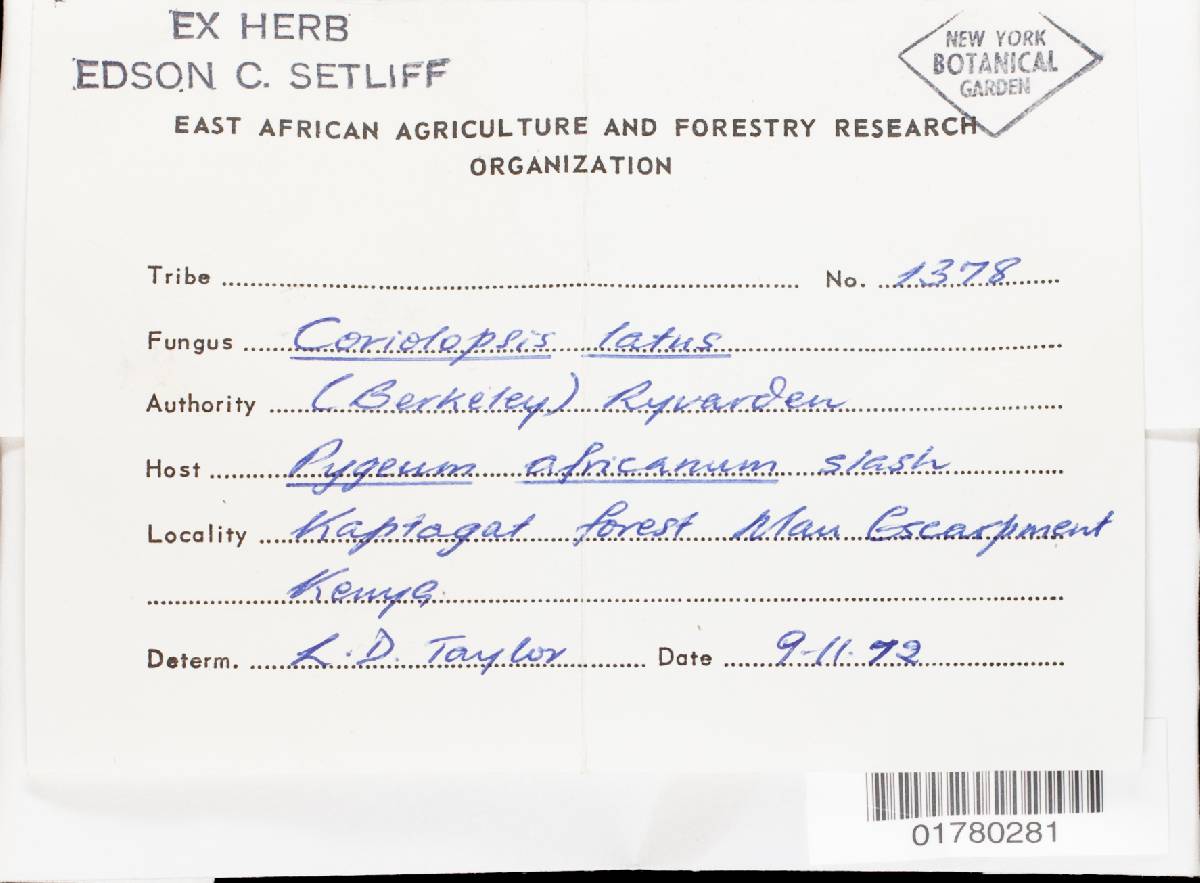 EX HERB
EDSON C. SETLIFF
NEW YORK
BOTANICAL
GARDEN
EAST AFRICAN AGRICULTURE AND FORESTRY RESEARCH
ORGANIZATION
Tribe
No. 1378
Fungus Coriolopsis latus
Authority (Berkeley) Ryvarden
Host Pygeum africanum slash
Locality Kaptagat forest Mau Escarpment
Kenya
Determ. L. D. Taylor Date 9-11-72
01780281